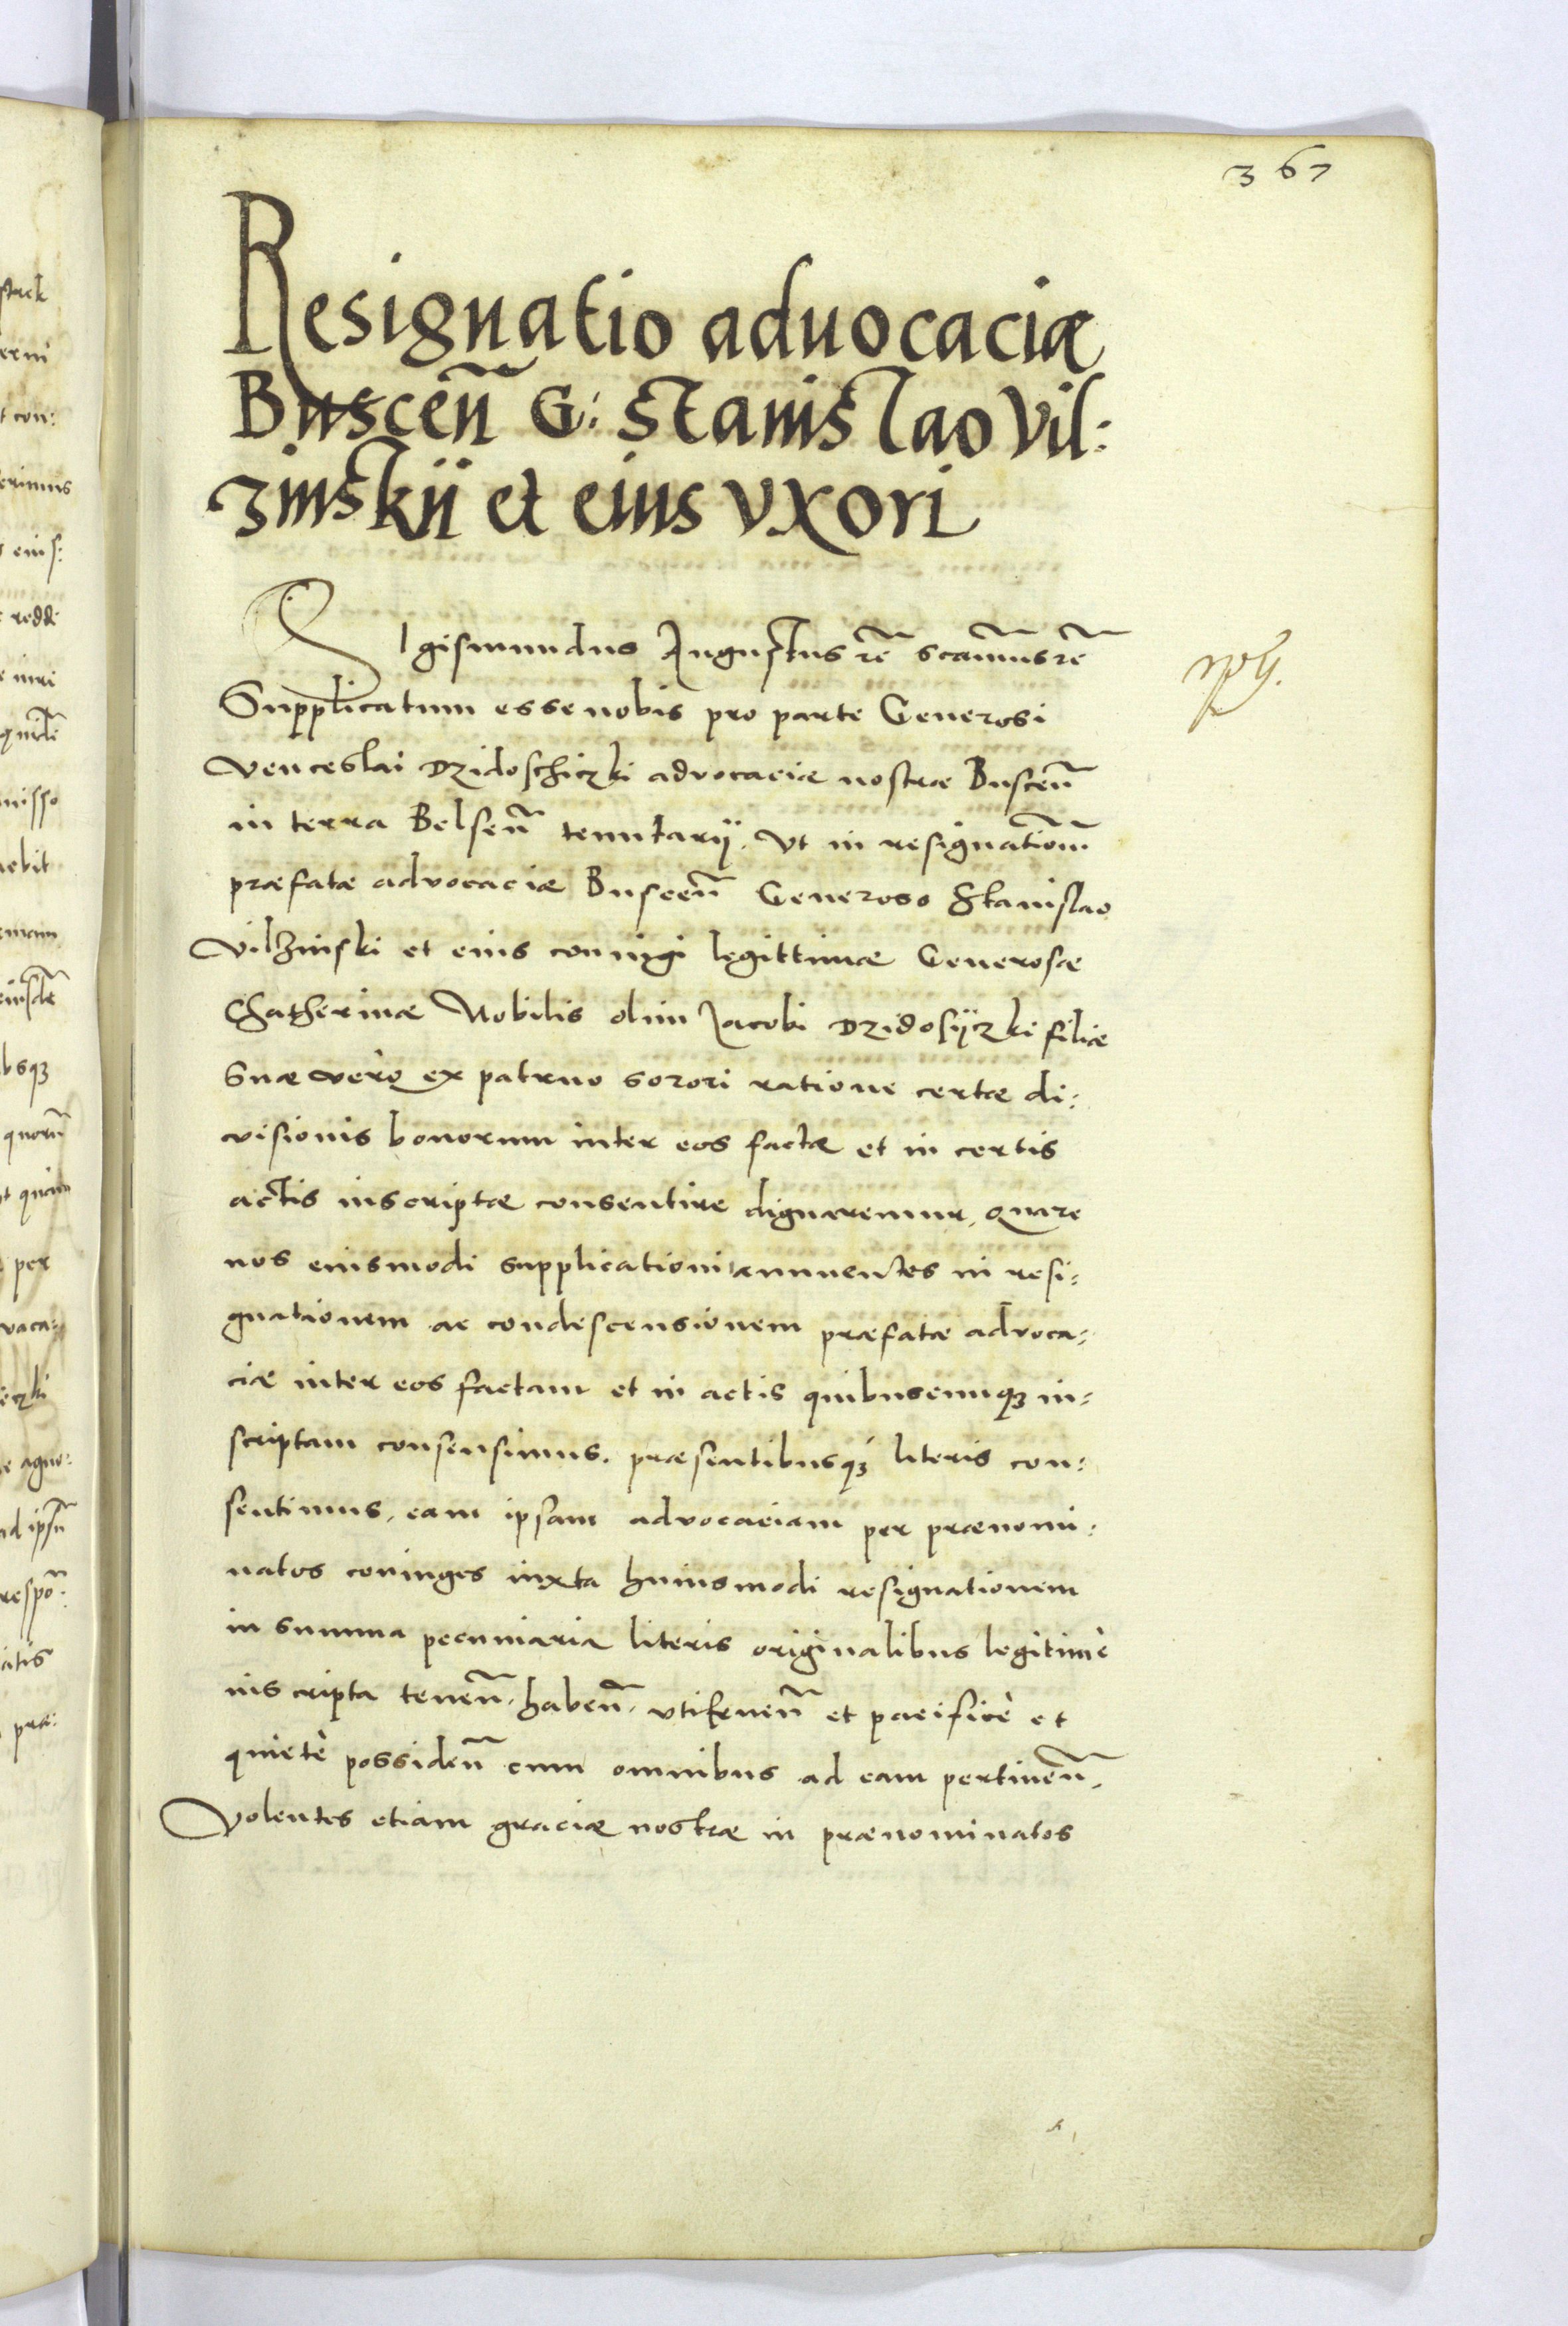 367
Resignatio aduocaciæ
Buscen̄ G: Stanislao Vil:
zinskii et eius vxori
Sigismundus Augustus rē scām̄us rē
Supplicatum esse nobis pro parte Generosi
Venceslai Dzidoschiczki advocaciæ nostræ Buscen̄
in terra Belsen̄ tenutarij. Vt in resignationē̄
præfatæ advocaciæ Buscen̄ Generoso Stanislao
Vilzinski et eius coniugi legittimæ Generosæ
Chatherinæ Nobilis olim Jacobi Dzidosijczki filiæ
suæ vero ex patruo sorori ratione certæ di:
visionis bonorum inter eos factæ et in certis
actis inscriptæ consentire dignaremur, quare
nos eiusmodi supplicationi annuentes in resi:
gnationem ac condescensionem præfatæ advoca:
ciæ inter eos factam et in actis quibuscumqꝫ in:
scriptam consensimus. præsentibusqꝫ literis con:
sentimus, eam ipsam advocaciam per prænomi:
natos coniuges iuxta huiusmodi resignationem
in summa pecuniaria literis originalibus legitimè
inscripta tenen̄. haben̄. vtifruen̄ et pacificè et
quietè possiden̄ cum omnibus ad eam pertinen̄.
Volentes etiam graciæ nostræ in prænominatos